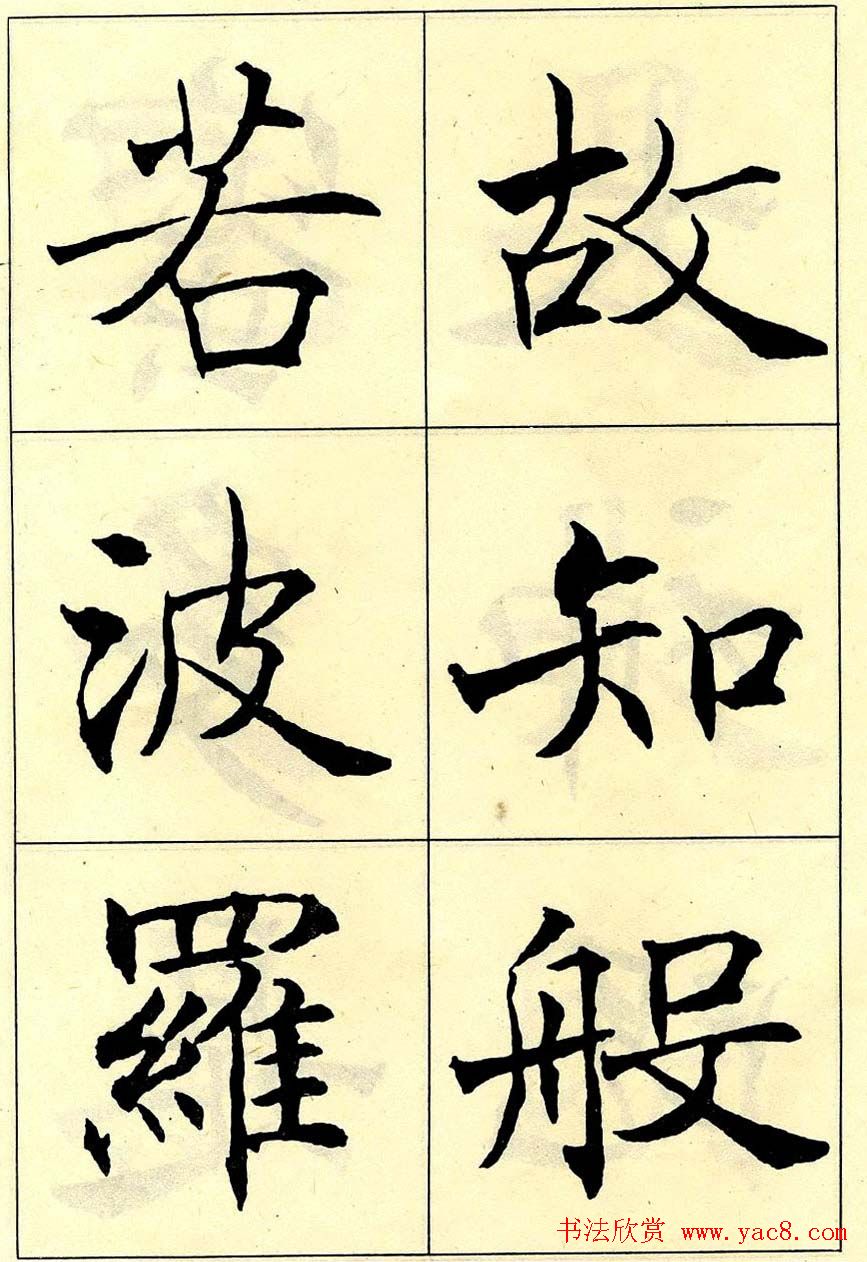 故知般
若波羅
书法欣赏 www.yac8.com